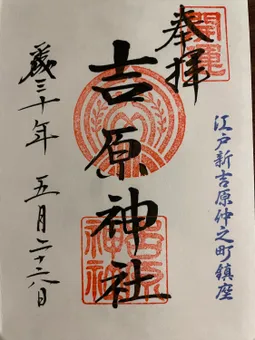 開運
奉拝
江戸新吉原仲之町鎮座
吉原神社
吉原神社
平成三十年 五月二十六日